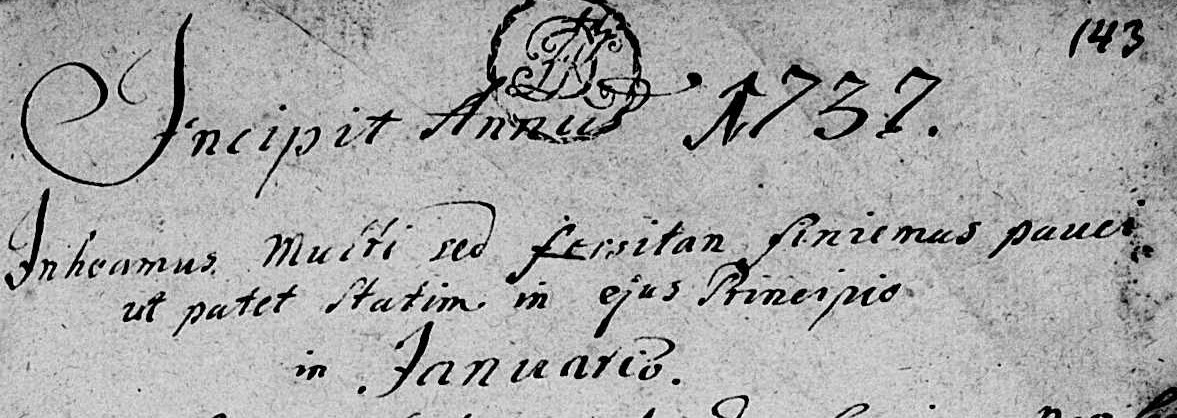 143
Incipit Annus 1737.
Inheamus Multi sed forsitan finiemus pauci
ut patet statim in ejus Principio
in Januario.